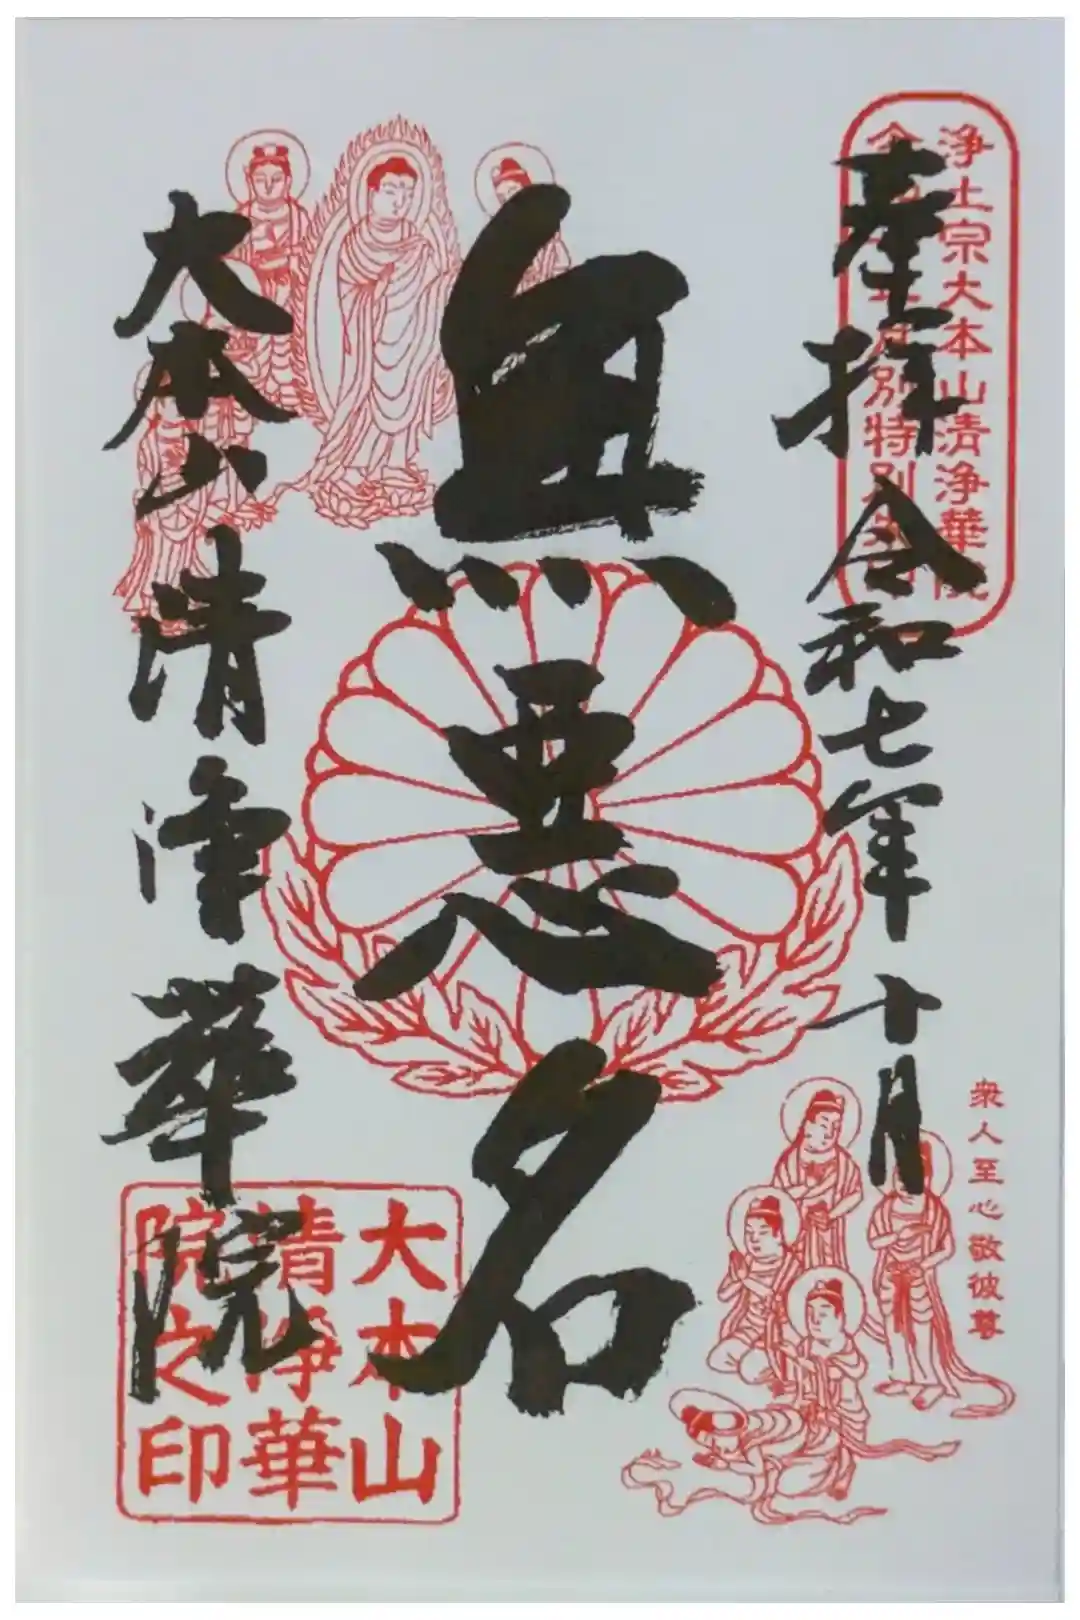 浄土宗大本山清浄華院
別特別
奉拝 令和七年十月
無悪名
大本山清浄華院
衆人至心敬彼尊
大本山
清浄華
院之印